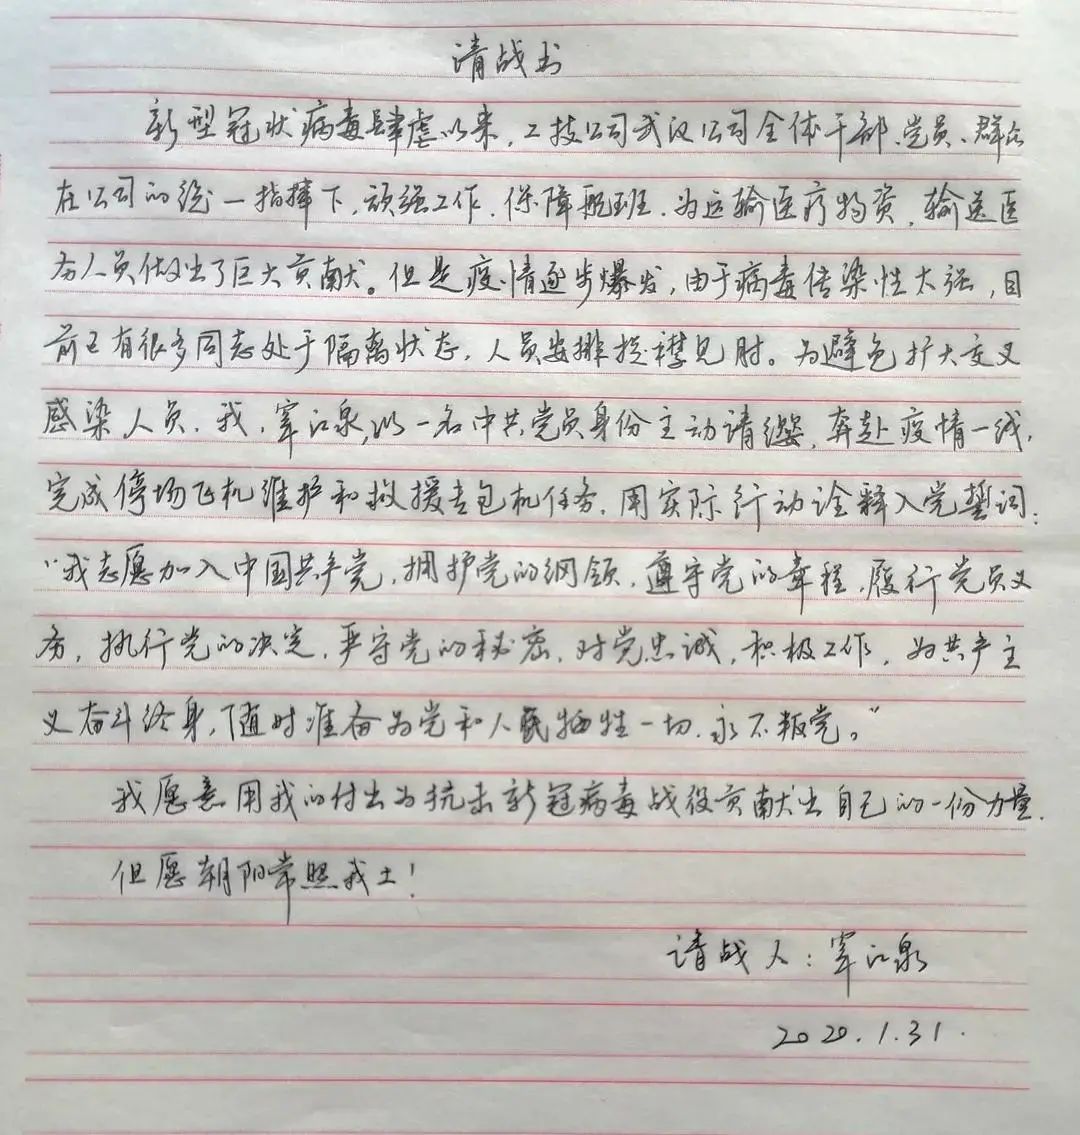 请战书
新型冠状病毒肆虐以来，工技公司武汉公司全体干部、党员、群众
在公司的统一指挥下，顽强工作，保障航班，为运输医疗物资，输送医
务人员做出了巨大贡献。但是疫情逐步爆发，由于病毒传染性太强，目
前已有很多同志处于隔离状态，人员安排捉襟见肘。为避免扩大交叉
感染人员，我，窜江泉，以一名中共党员身份主动请缨，奔赴疫情一线，
完成停场飞机维护和救援者包机任务，用实际行动诠释入党誓词：
“我志愿加入中国共产党，拥护党的纲领，遵守党的章程，履行党员义
务，执行党的决定，严守党的秘密，对党忠诚，积极工作，为共产主
义奋斗终身，随时准备为党和人民牺牲一切，永不叛党。”
我愿意用我的付出为抗击新冠病毒战役贡献出自己的一份力量，
但愿朝阳常照我土！
请战人：窜江泉
2020.1.31.